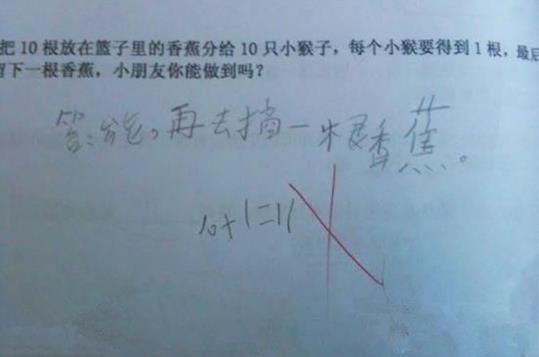 把10根放在篮子里的香蕉分给10只小猴子，每个小猴要得到1根，最后
留下一根香蕉，小朋友你能做到吗？
答：能，再去摘一根香蕉。
10+1=11